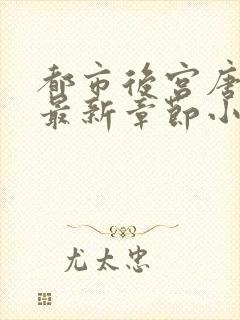 都市後宮唐
最新章節小
尤太忠